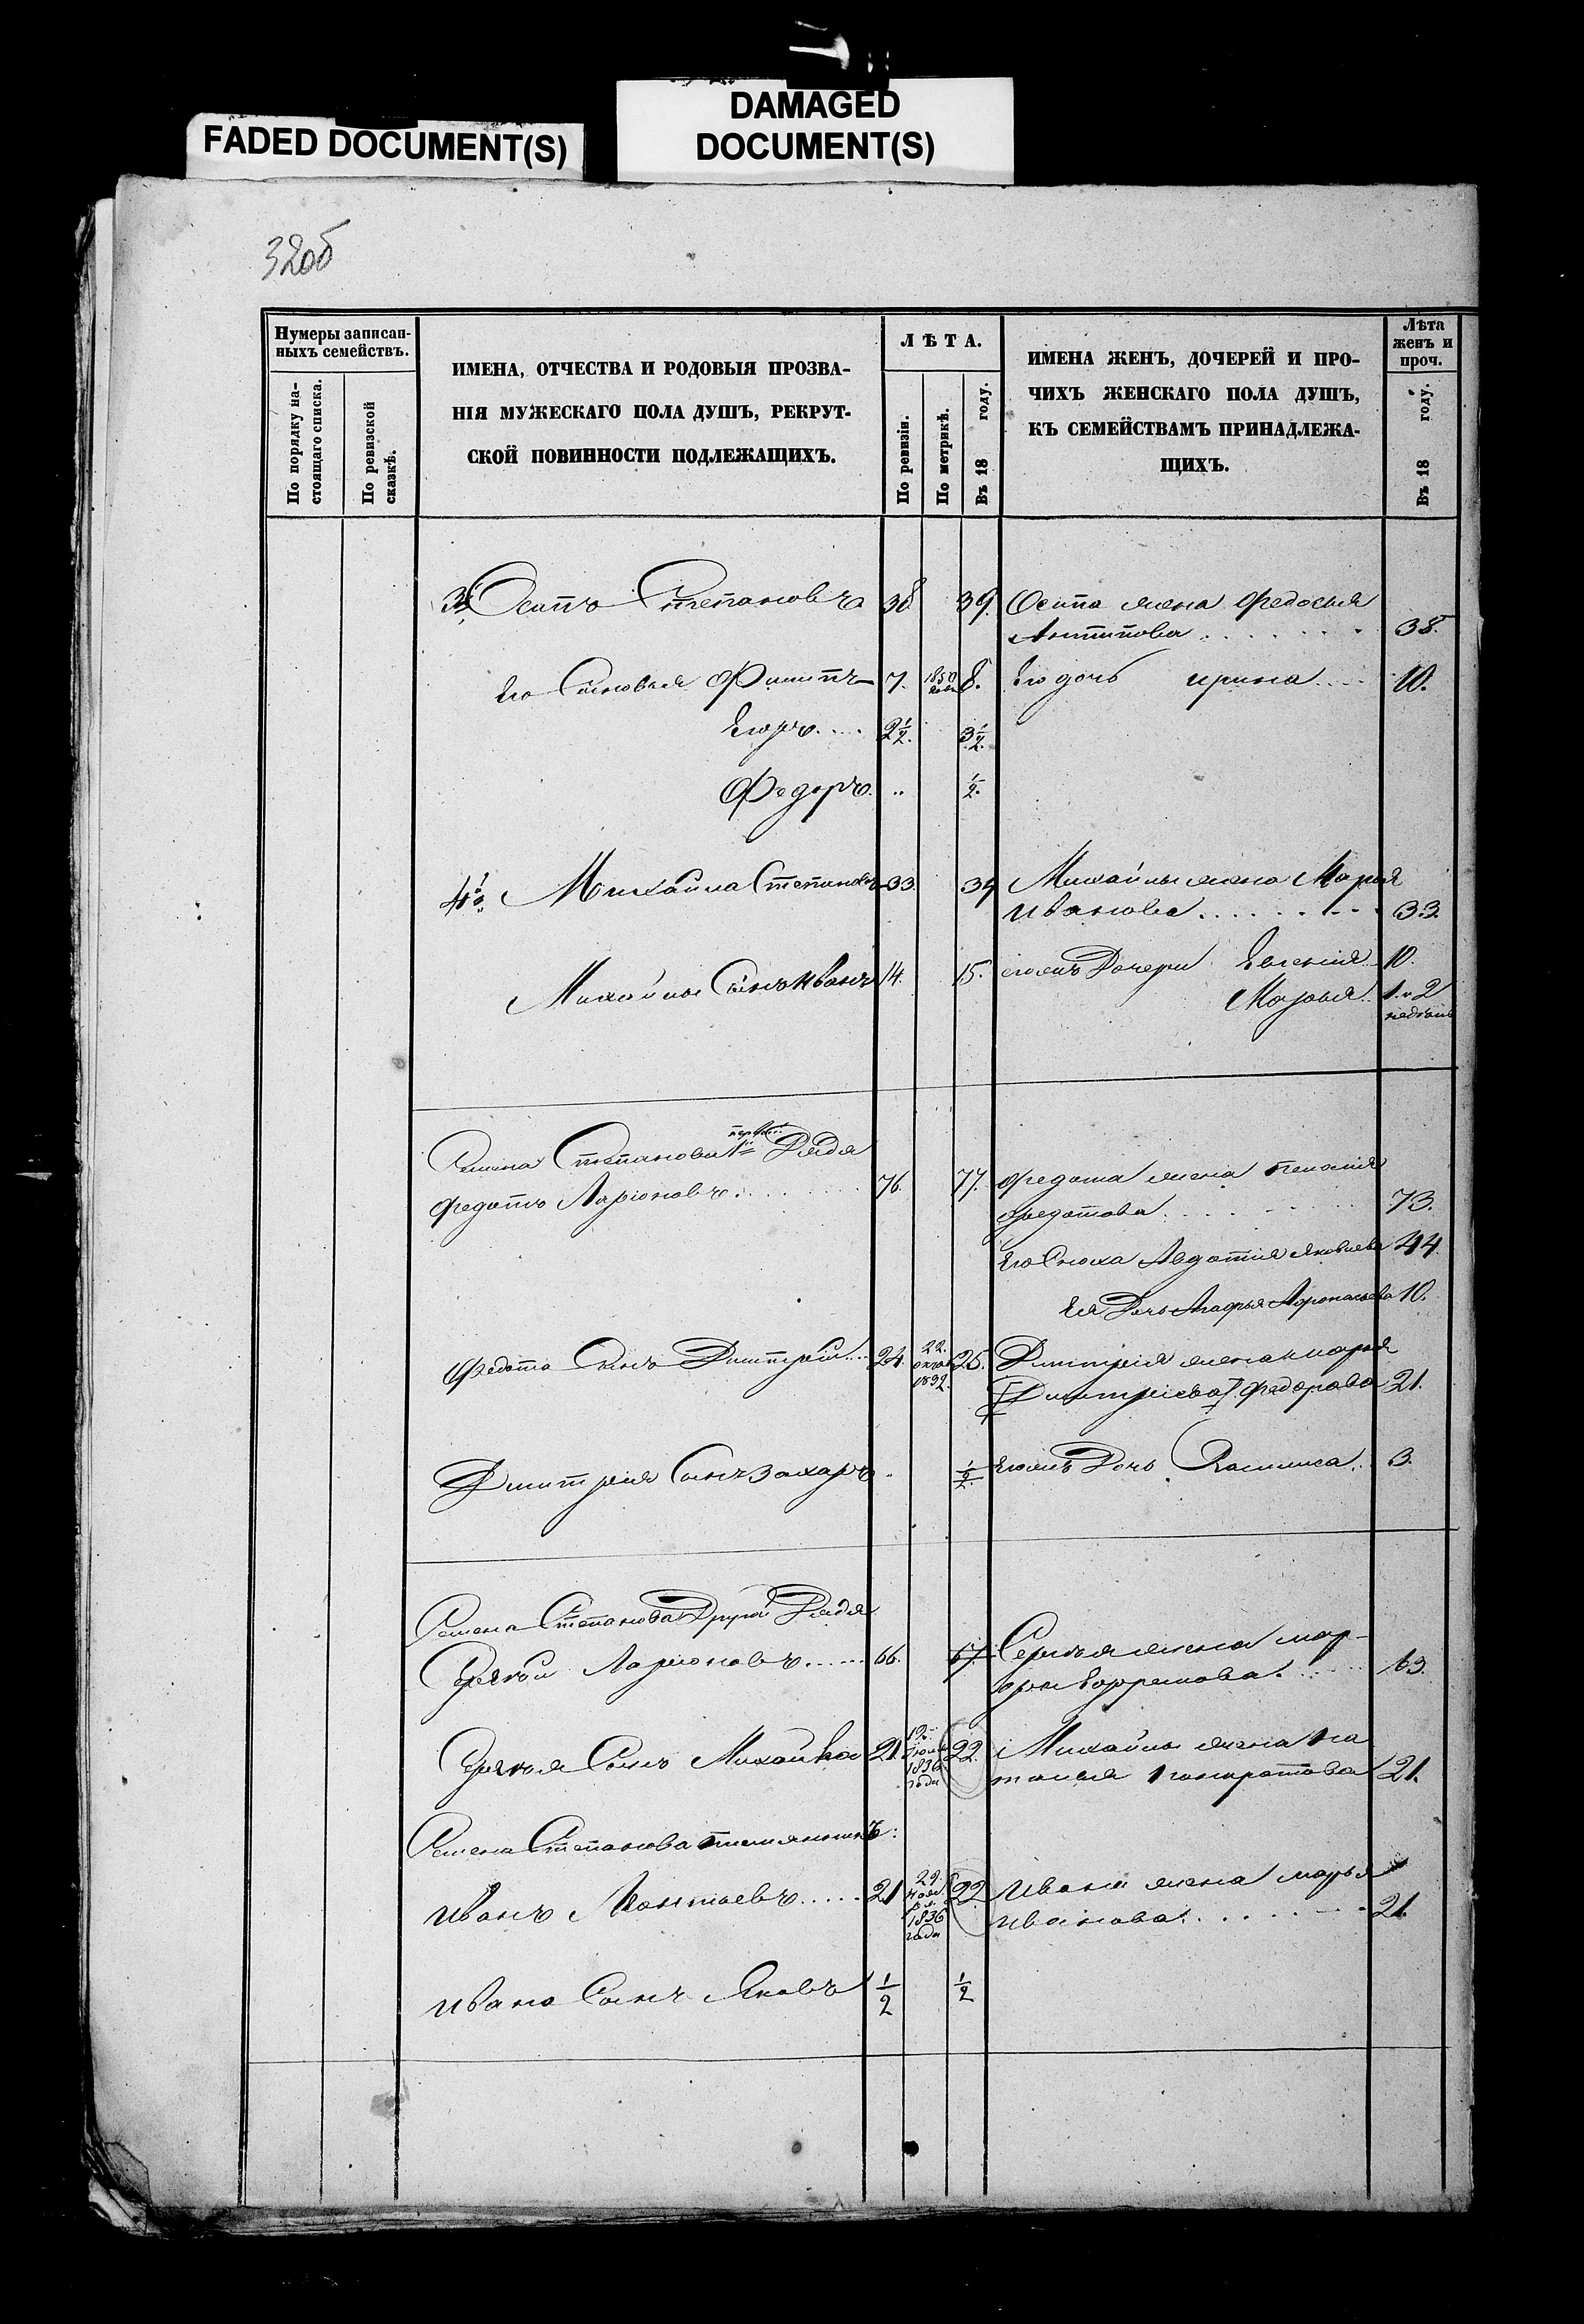 FADED DOCUMENT(S)
DAMAGED
DOCUMENT(S)
32об
Нумеры записан-
ныхъ семействъ.
По порядку на-
стоящаго списка.
По ревизской
сказкѣ.
ИМЕНА, ОТЧЕСТВА И РОДОВЫЯ ПРОЗВА-
НІЯ МУЖЕСКАГО ПОЛА ДУШЪ, РЕКРУТ-
СКОЙ ПОВИННОСТИ ПОДЛЕЖАЩИХЪ.
ЛѢТА.
По ревизіи.
По метрикѣ.
Въ 18 году.
ИМЕНА ЖЕНЪ, ДОЧЕРЕЙ И ПРО-
ЧИХЪ ЖЕНСКАГО ПОЛА ДУШЪ,
КЪ СЕМЕЙСТВАМЪ ПРИНАДЛЕЖА-
ЩИХЪ.
Лѣта
женъ и
проч.
Въ 18 году.
Осипъ Степановъ 38 39. Осипа жена Федосья
Антипова 38.
Его Сыновья Филипъ 7. 1850 8. Его дочь ирина 10.
Егоръ 2 1/2. 3 1/2.
Федоръ. „ 1/2.
Михайла Степановъ 33. 34 Михайлы жена Марья
Иванова 33.
Михайлы Сынъ Иванъ 14. 15. Дочери Евгенія 10.
Марья 1. и 2
недѣль
Семена Степанова 1й первой Дядя
Федотъ Ларіоновъ 76. 77. Федота жена
Федотова 73.
Его Сноха Авдотья Яковлева 44.
Ея Дочь Агафья Афонасьева 10.
Федота Сынъ Дмитрей 24. 22. окт 1832. 25. Дмитрія жена марья
[Дмитріева] Федорова 21.
Дмитрія Сынъ Захаръ „ 1/2. Дочь 3.
Семена Степанова Другой Дядя
Сергѣй Ларіоновъ 66. 67. Сергѣя жена мар-
фа Ефремова 63.
Сергѣя Сынъ Михайла 21. 1836 года 22. Михайлы жена На
талья Панкратова 21.
Семена Степанова племянникъ:
Иванъ Леонтьевъ 21 29. ноября 1836 года 22. Ивана жена марья
Иванова 21.
Ивана Сынъ Яковъ 1/2 1/2